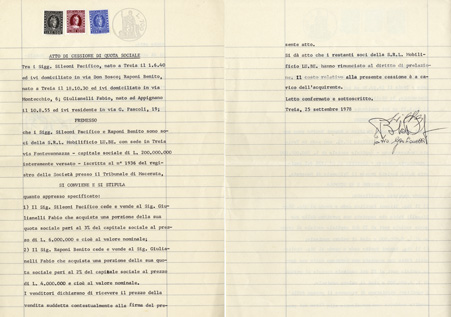 ATTO DI CESSIONE DI QUOTA SOCIALE
Tra i Sigg. Dilsomi Pacifico, nato a Treia il 1.6.40
ed ivi domiciliato in via Don Bosco; Raponi Benito,
nato a Treia il 10.10.50 ed ivi domiciliato in via
Montecchio, 8; Giulianelli Fabio, nato ad Appignano
il 10.8.55 ed ivi residente in via G. Pascoli, 19;
PREMESSO
che i Sigg. Dilsomi Pacifico e Raponi Benito sono so-
ci della S.R.L. Mobilificio LU.BE. con sede in Treia
via Fontevannazza - capitale sociale di L. 200.000.000
interamente versato - iscritta al n° 1936 del regi-
stro delle Società presso il Tribunale di Macerata,
SI CONVIENE E SI STIPULA
quanto appresso specificato:
1) Il Sig. Dilsomi Pacifico cede e vende al Sig. Giu-
lianelli Fabio che acquista una porzione della sua
quota sociale pari al 3% del capitale sociale al prez-
zo di L. 6.000.000 e cioè al valore nominale;
2) Il Sig. Raponi Benito cede e vende al Sig. Giulia-
nelli Fabio che acquista una porzione della sua quo-
ta sociale pari al 2% del capitale sociale al prezzo
di L. 4.000.000 e cioè al valore nominale.
I venditori dichiarano di ricevere il prezzo della
vendita suddetta contestualmente alla firma del pre-
sente atto.
Si dà atto che i restanti soci della S.R.L. Mobili-
ficio LU.BE. hanno rinunciato al diritto di prelazio-
ne. Il costo relativo alla presente cessione è a ca-
rico dell'acquirente.
Letto confermato e sottoscritto,
Treia, 25 settembre 1978